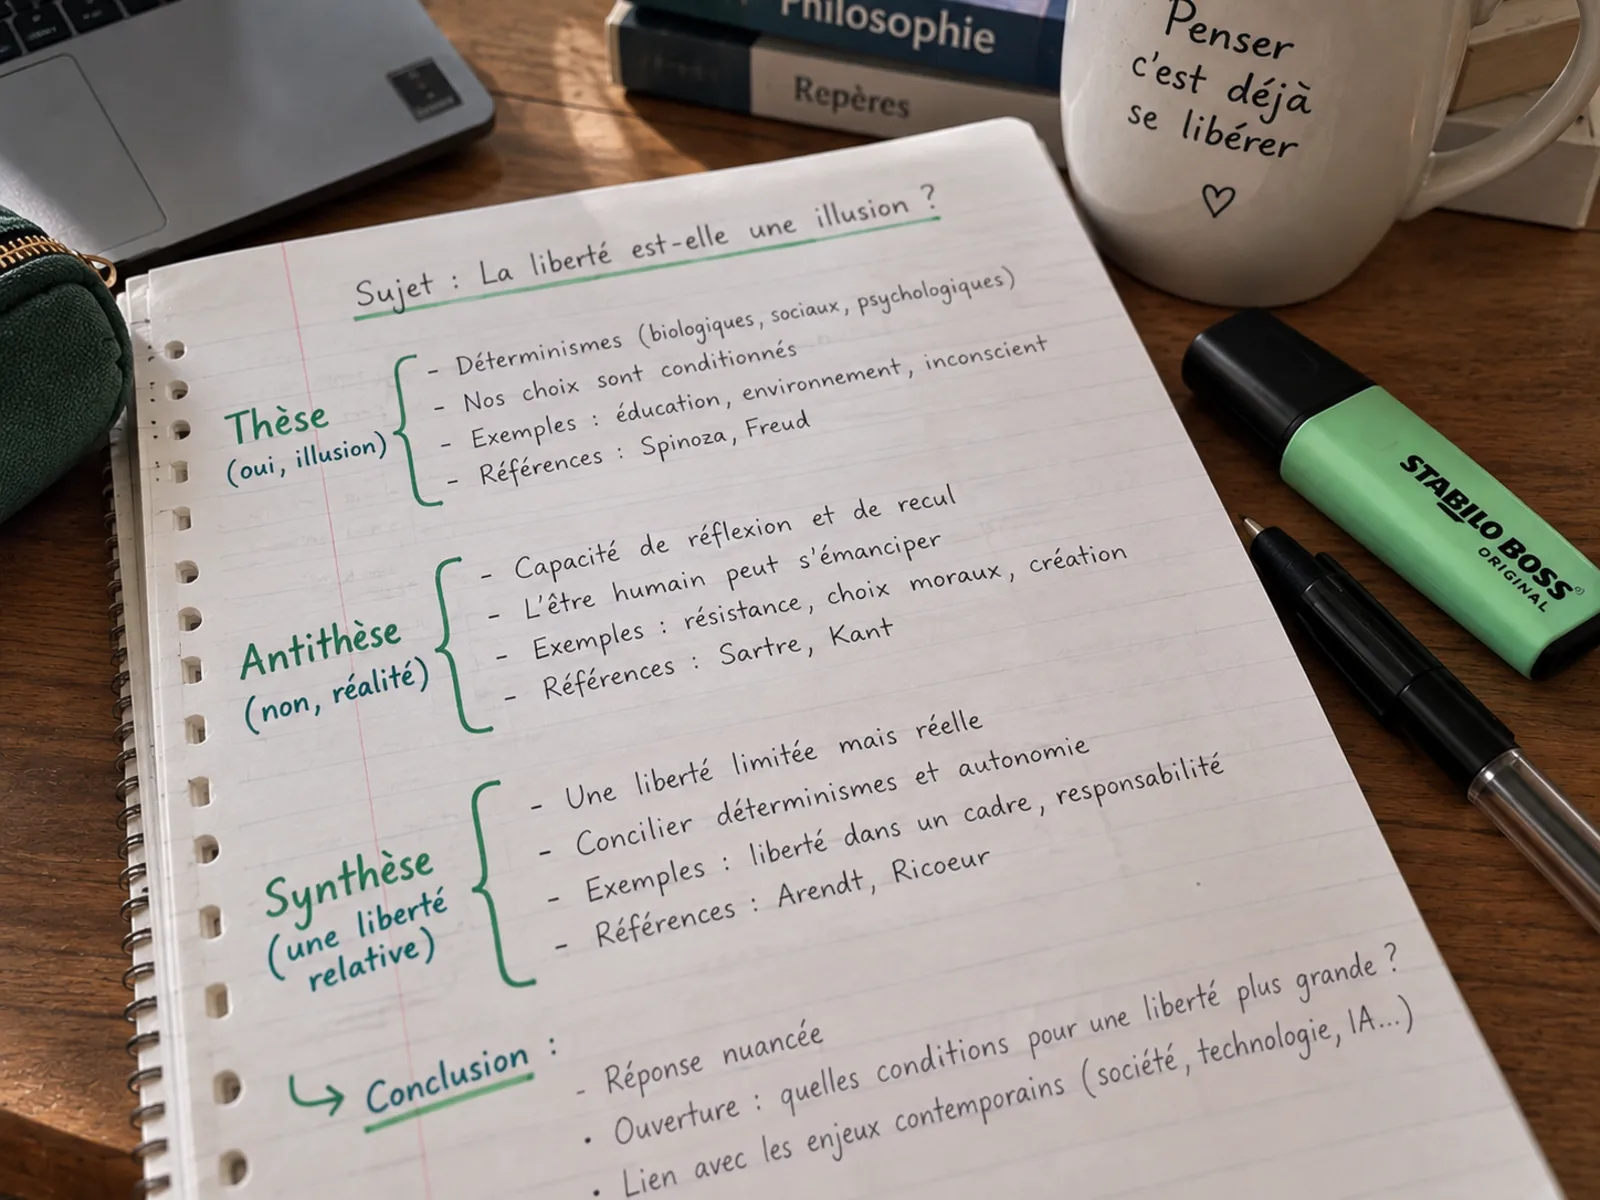 Philosophie
Repères
Penser
c'est déjà
se libérer
♡
Sujet : La liberté est-elle une illusion ?
Thèse
(oui, illusion)
- Déterminismes (biologiques, sociaux, psychologiques)
- Nos choix sont conditionnés
- Exemples : éducation, environnement, inconscient
- Références : Spinoza, Freud
Antithèse
(non, réalité)
- Capacité de réflexion et de recul
- L'être humain peut s'émanciper
- Exemples : résistance, choix moraux, création
- Références : Sartre, Kant
Synthèse
(une liberté
relative)
- Une liberté limitée mais réelle
- Concilier déterminismes et autonomie
- Exemples : liberté dans un cadre, responsabilité
- Références : Arendt, Ricoeur
↳ Conclusion :
- Réponse nuancée
• Ouverture : quelles conditions pour une liberté plus grande ?
• Lien avec les enjeux contemporains (société, technologie, IA...)
STABILO BOSS
ORIGINAL